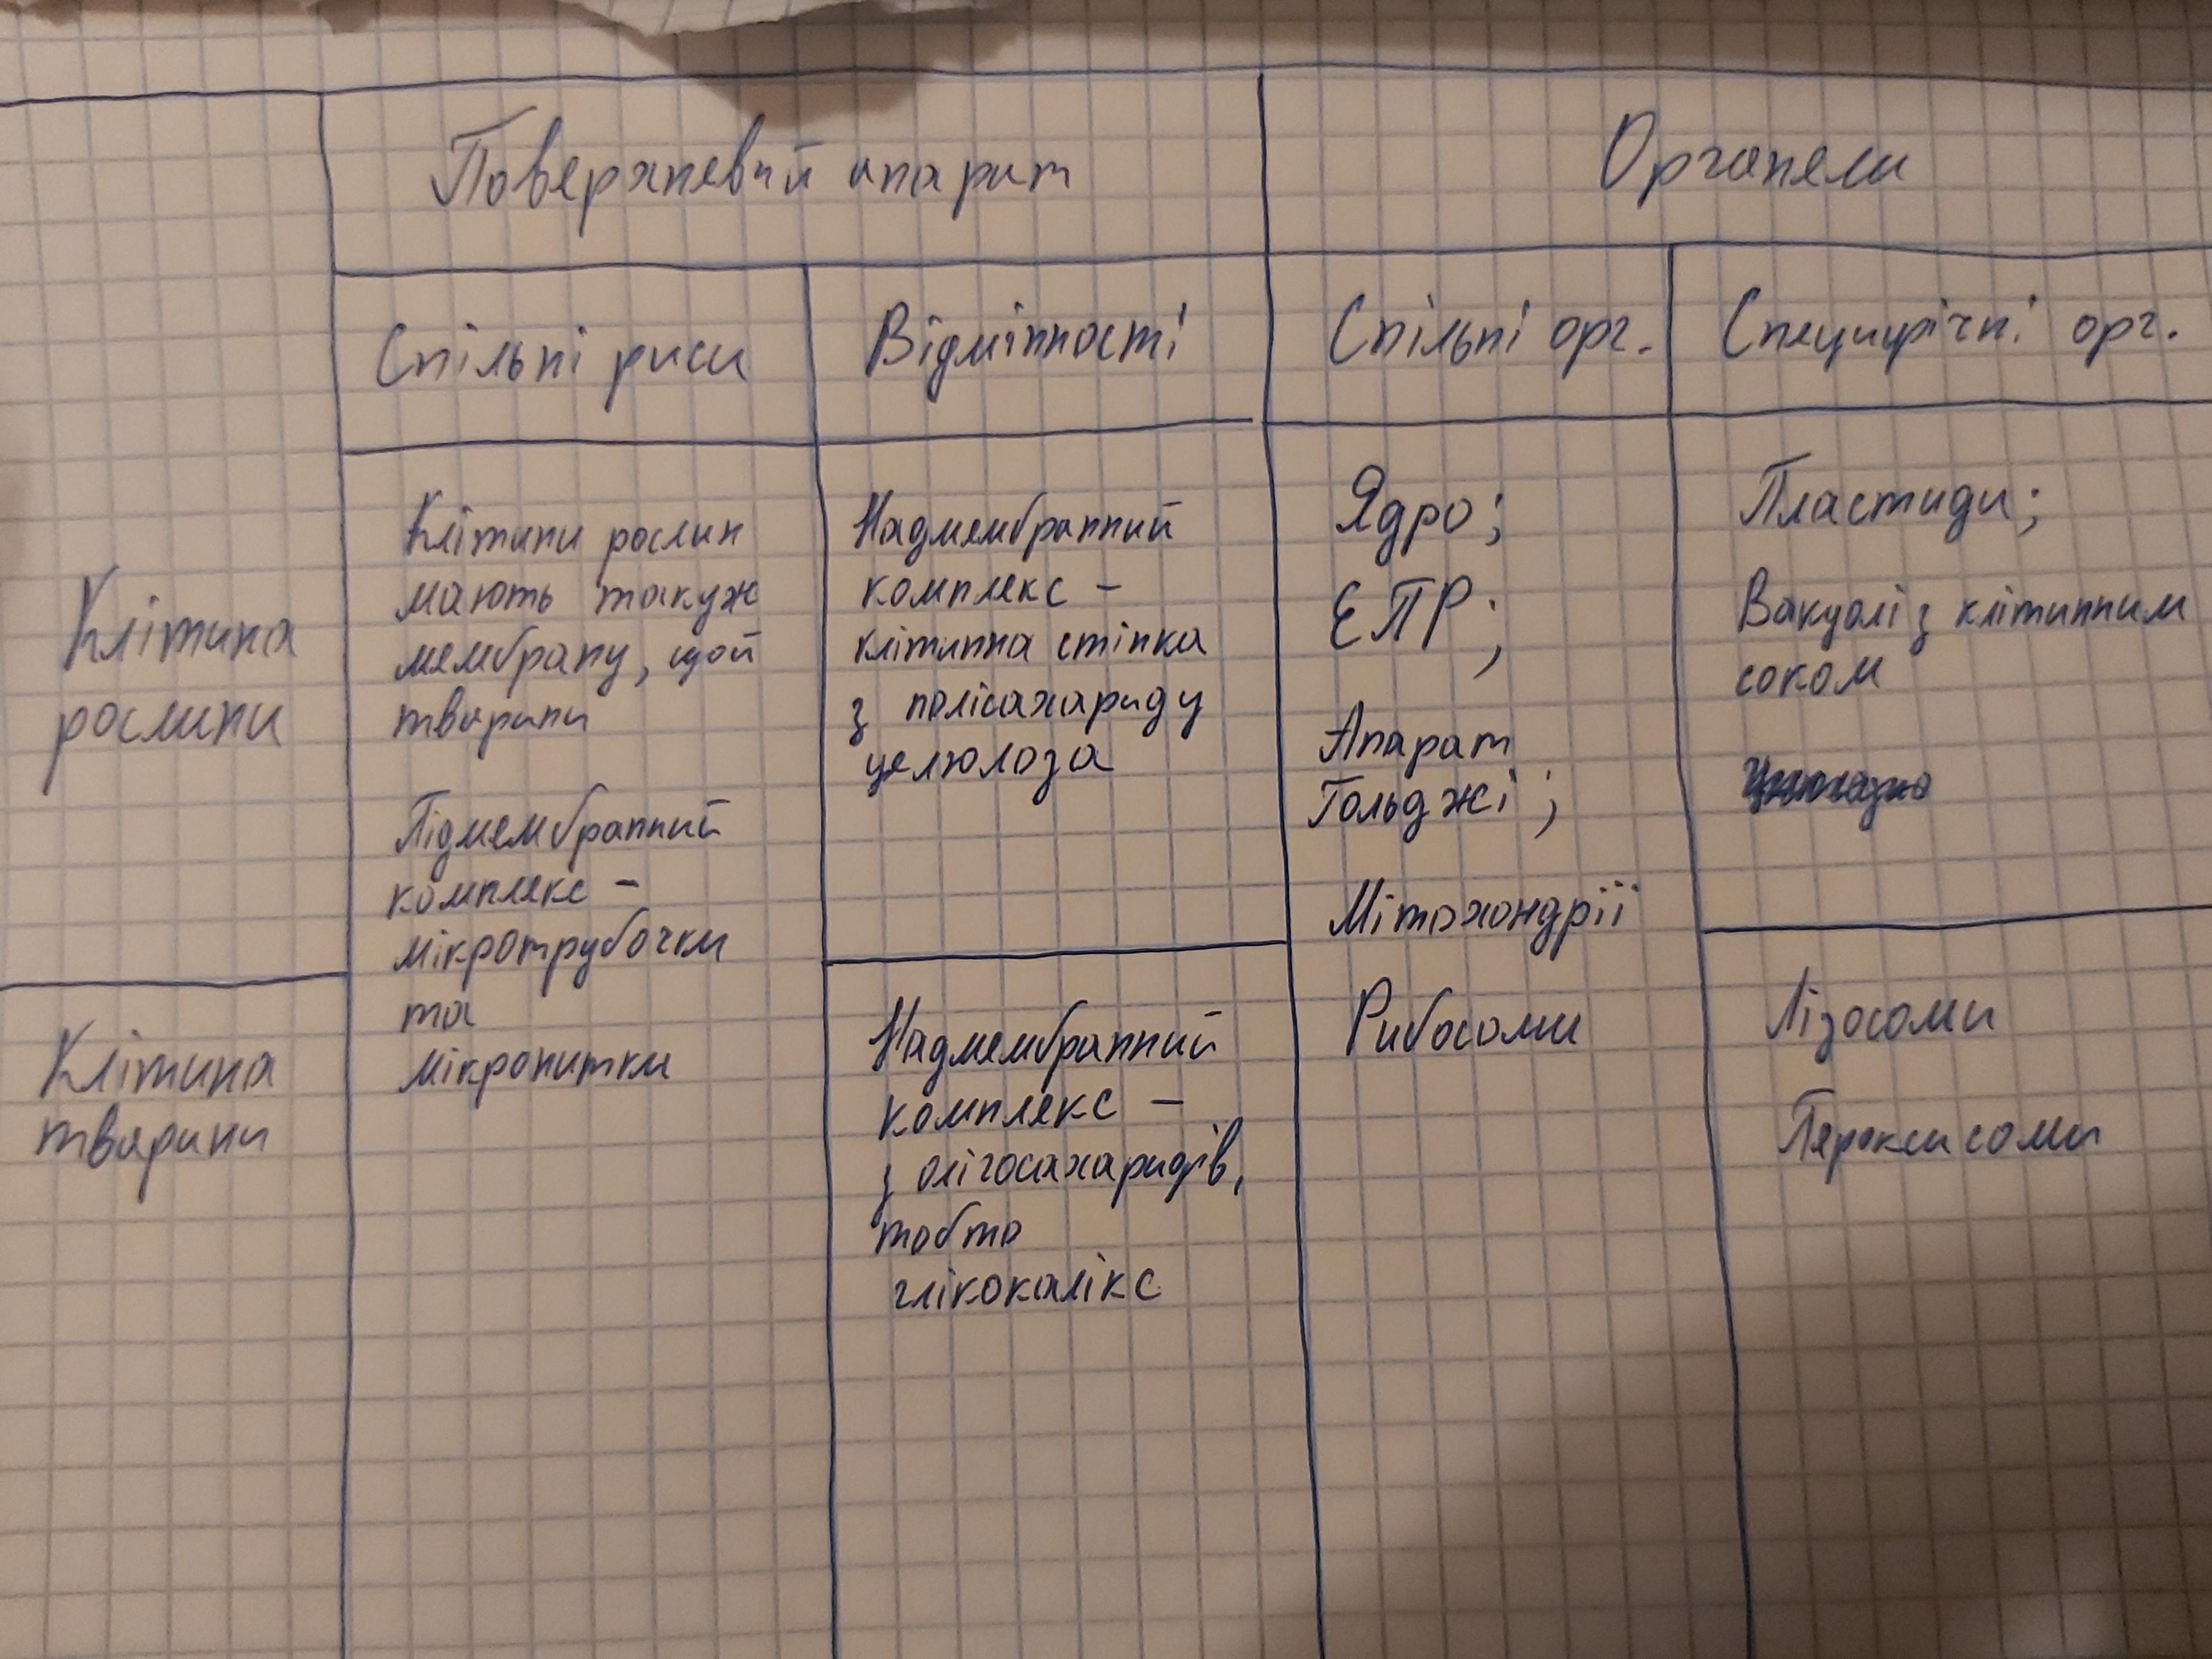 Поверхневий апарат
Органели
Спільні риси
Відмінності
Спільні орг.
Специфічні орг.
Клітина
рослини
Клітини рослин
мають такуж
мембрану, щой
тварини
Підмембранний
комплекс -
мікротрубочки
та
мікронитки
Надмембранний
комплекс -
клітинна стінка
з полісахариду
целюлоза
Ядро;
ЕПР;
Апарат
Гольджі;
Мітохондрії
Рибосоми
Пластиди;
Вакуолі з клітинним
соком
Клітина
тварини
Надмембранний
комплекс -
з олігосахаридів,
тобто
глікокалікс
Лізосоми
Пероксисоми